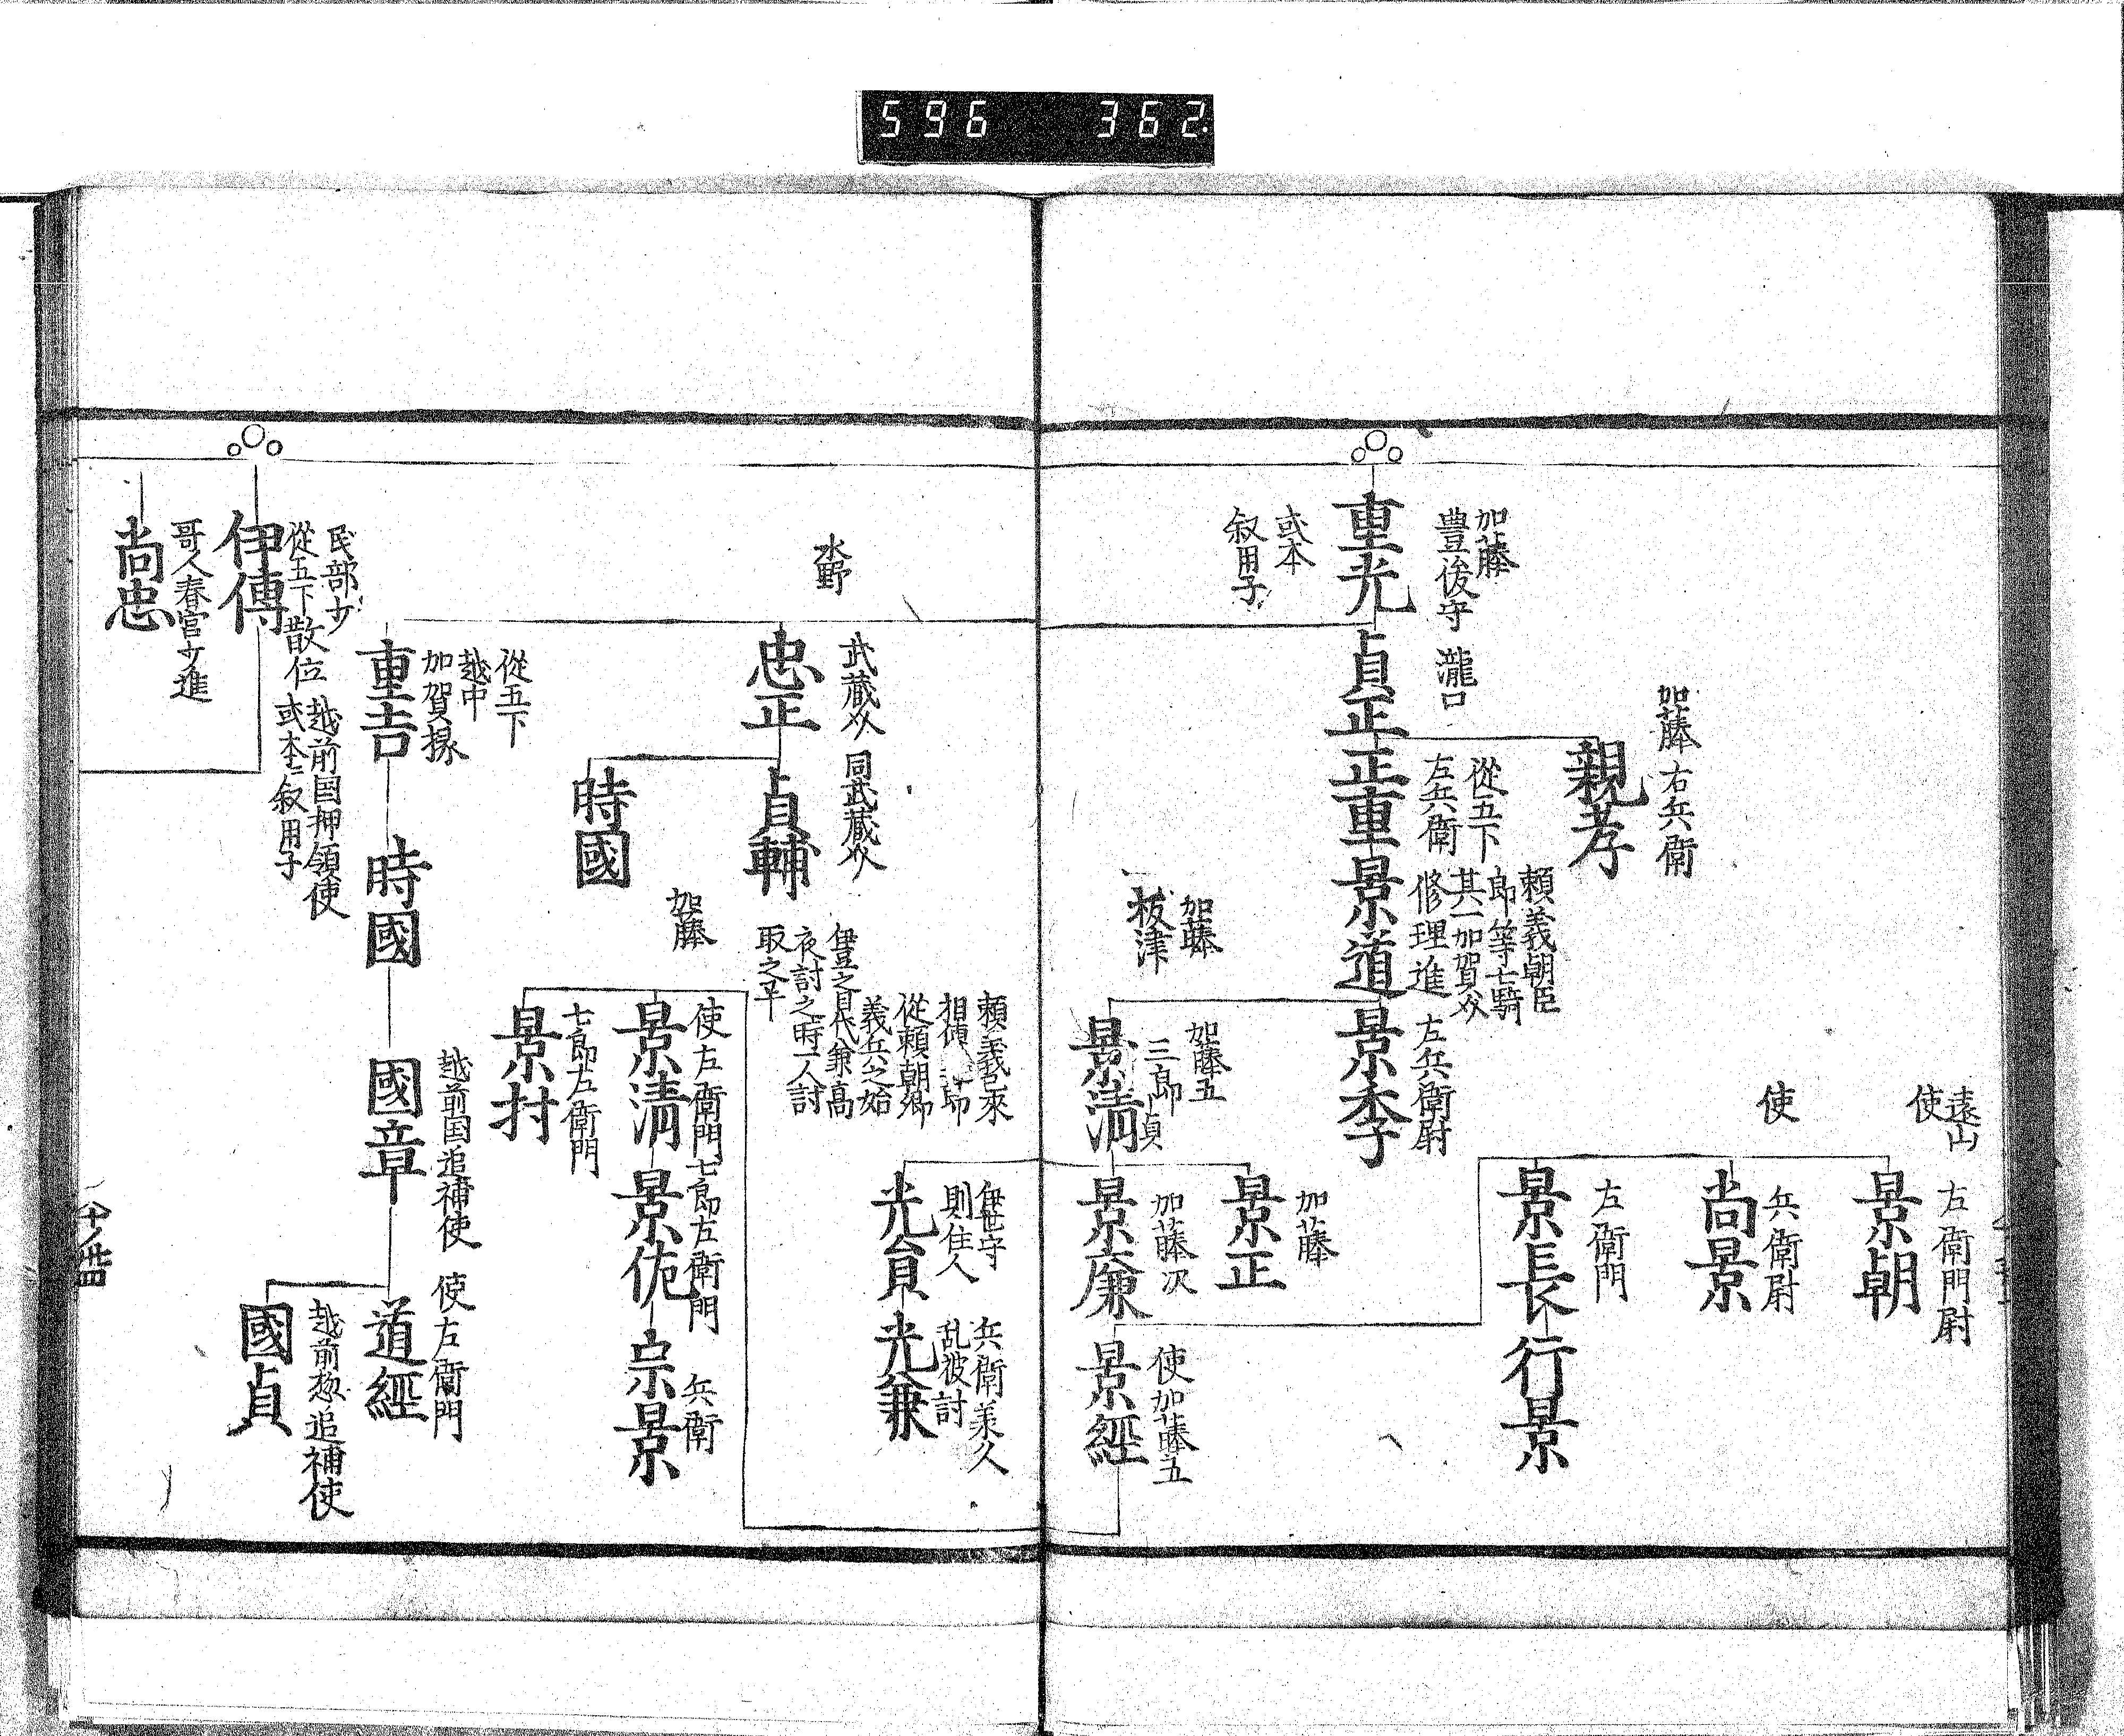 596 362
遠山
使
左衛門尉
景朝
使
兵衛尉
尚景
左衛門
景長
行景
加藤右兵衛
親孝
加藤
豊後守 瀧口
重光
或本
叙用子
貞正
從五下
左兵衛
正重
頼義朝臣
郎等七騎
其一加賀
修理進
景道
左兵衛尉
景季
加藤
加藤
景正
加藤五
三郎
景清
加藤次
景廉
使加藤五
景經
伊世守
則住人
光員
兵衛 兼久
乱被討
光兼
從頼朝卿
義兵之始
伊豆之目代兼高
夜討之時一人討
取之
水野
武藏
忠正
同武藏
貞輔
時國
加藤
使左衛門
景清
七郎左衛門
景佐
兵衛
宗景
七郎左衛門
景村
從五下
越中
加賀掾
重吉
時國
越前国追補使
國章
使左衛門
道經
越前惣追補使
國貞
民部少
從五下散位
越前国押領使
或本叙用子
伊傳
哥人春宮少進
尚忠